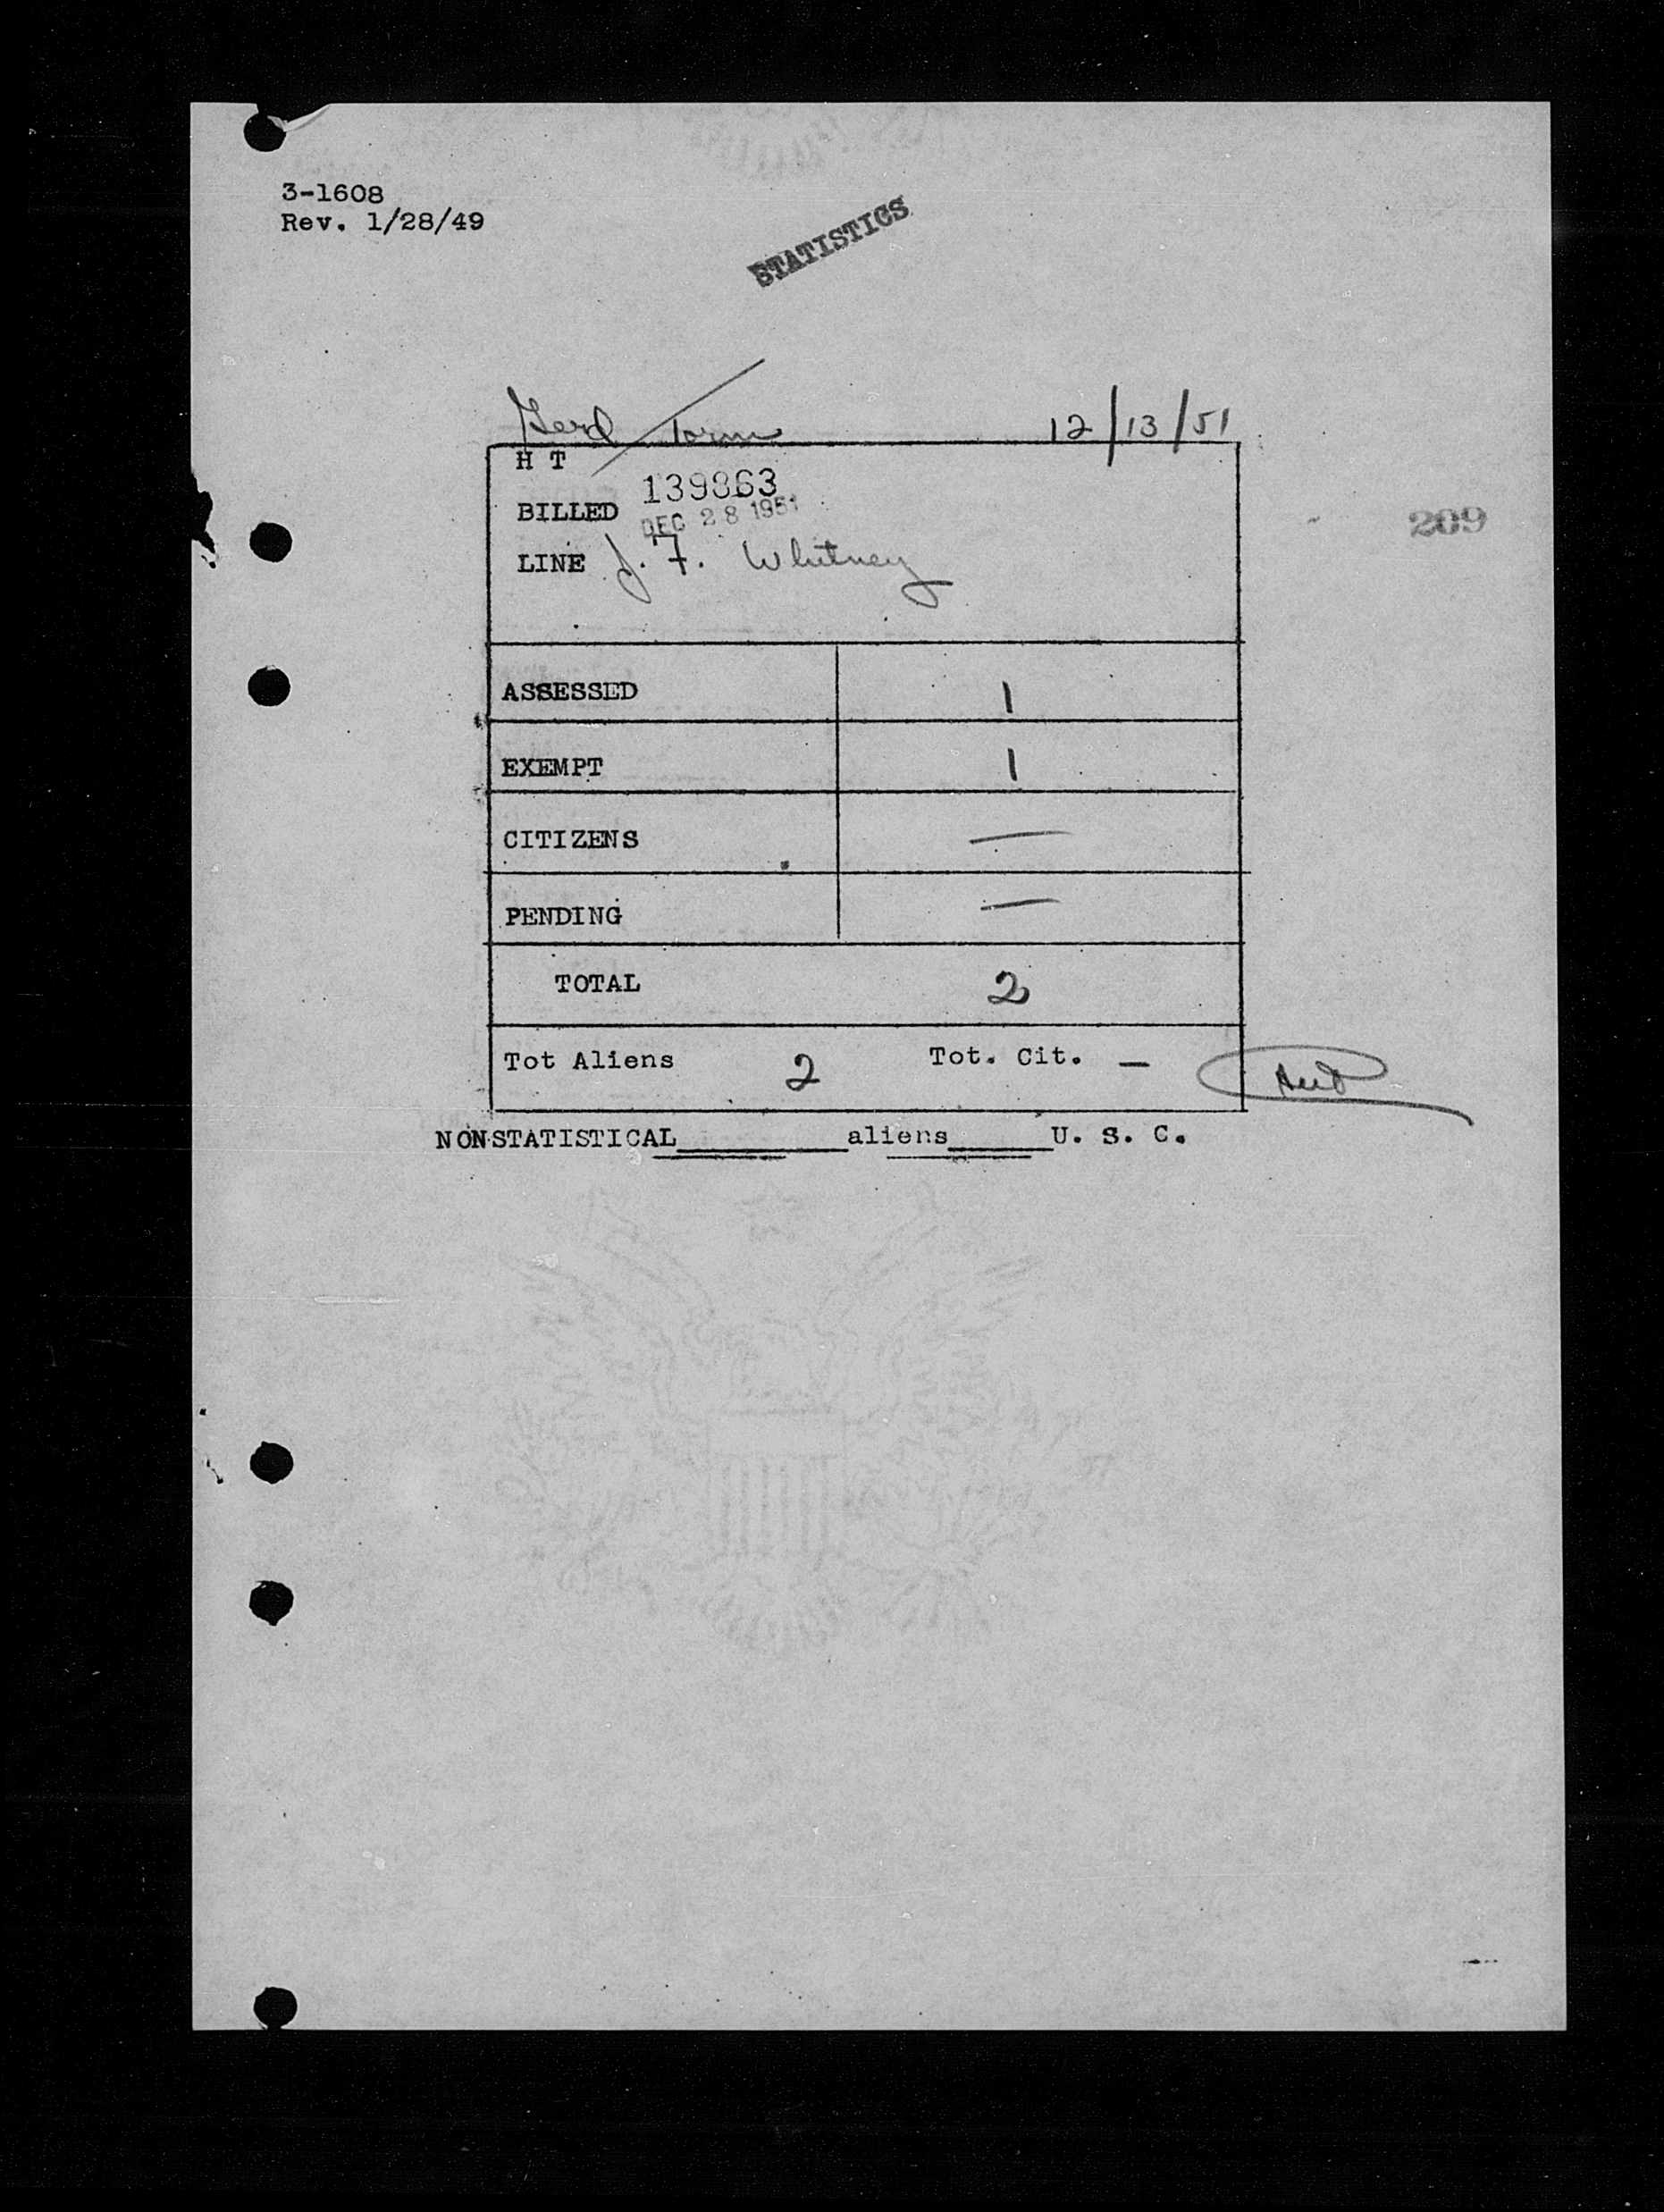 3-1608
Rev. 1/28/49
STATISTICS
Gerd Torm 12/13/51
H T
139863
BILLED DEC 28 1951
209
LINE J. F. Whitney
ASSESSED 1
EXEMPT 1
CITIZENS —
PENDING —
TOTAL 2
Tot Aliens 2 Tot. Cit. —
NONSTATISTICAL aliens U. S. C.